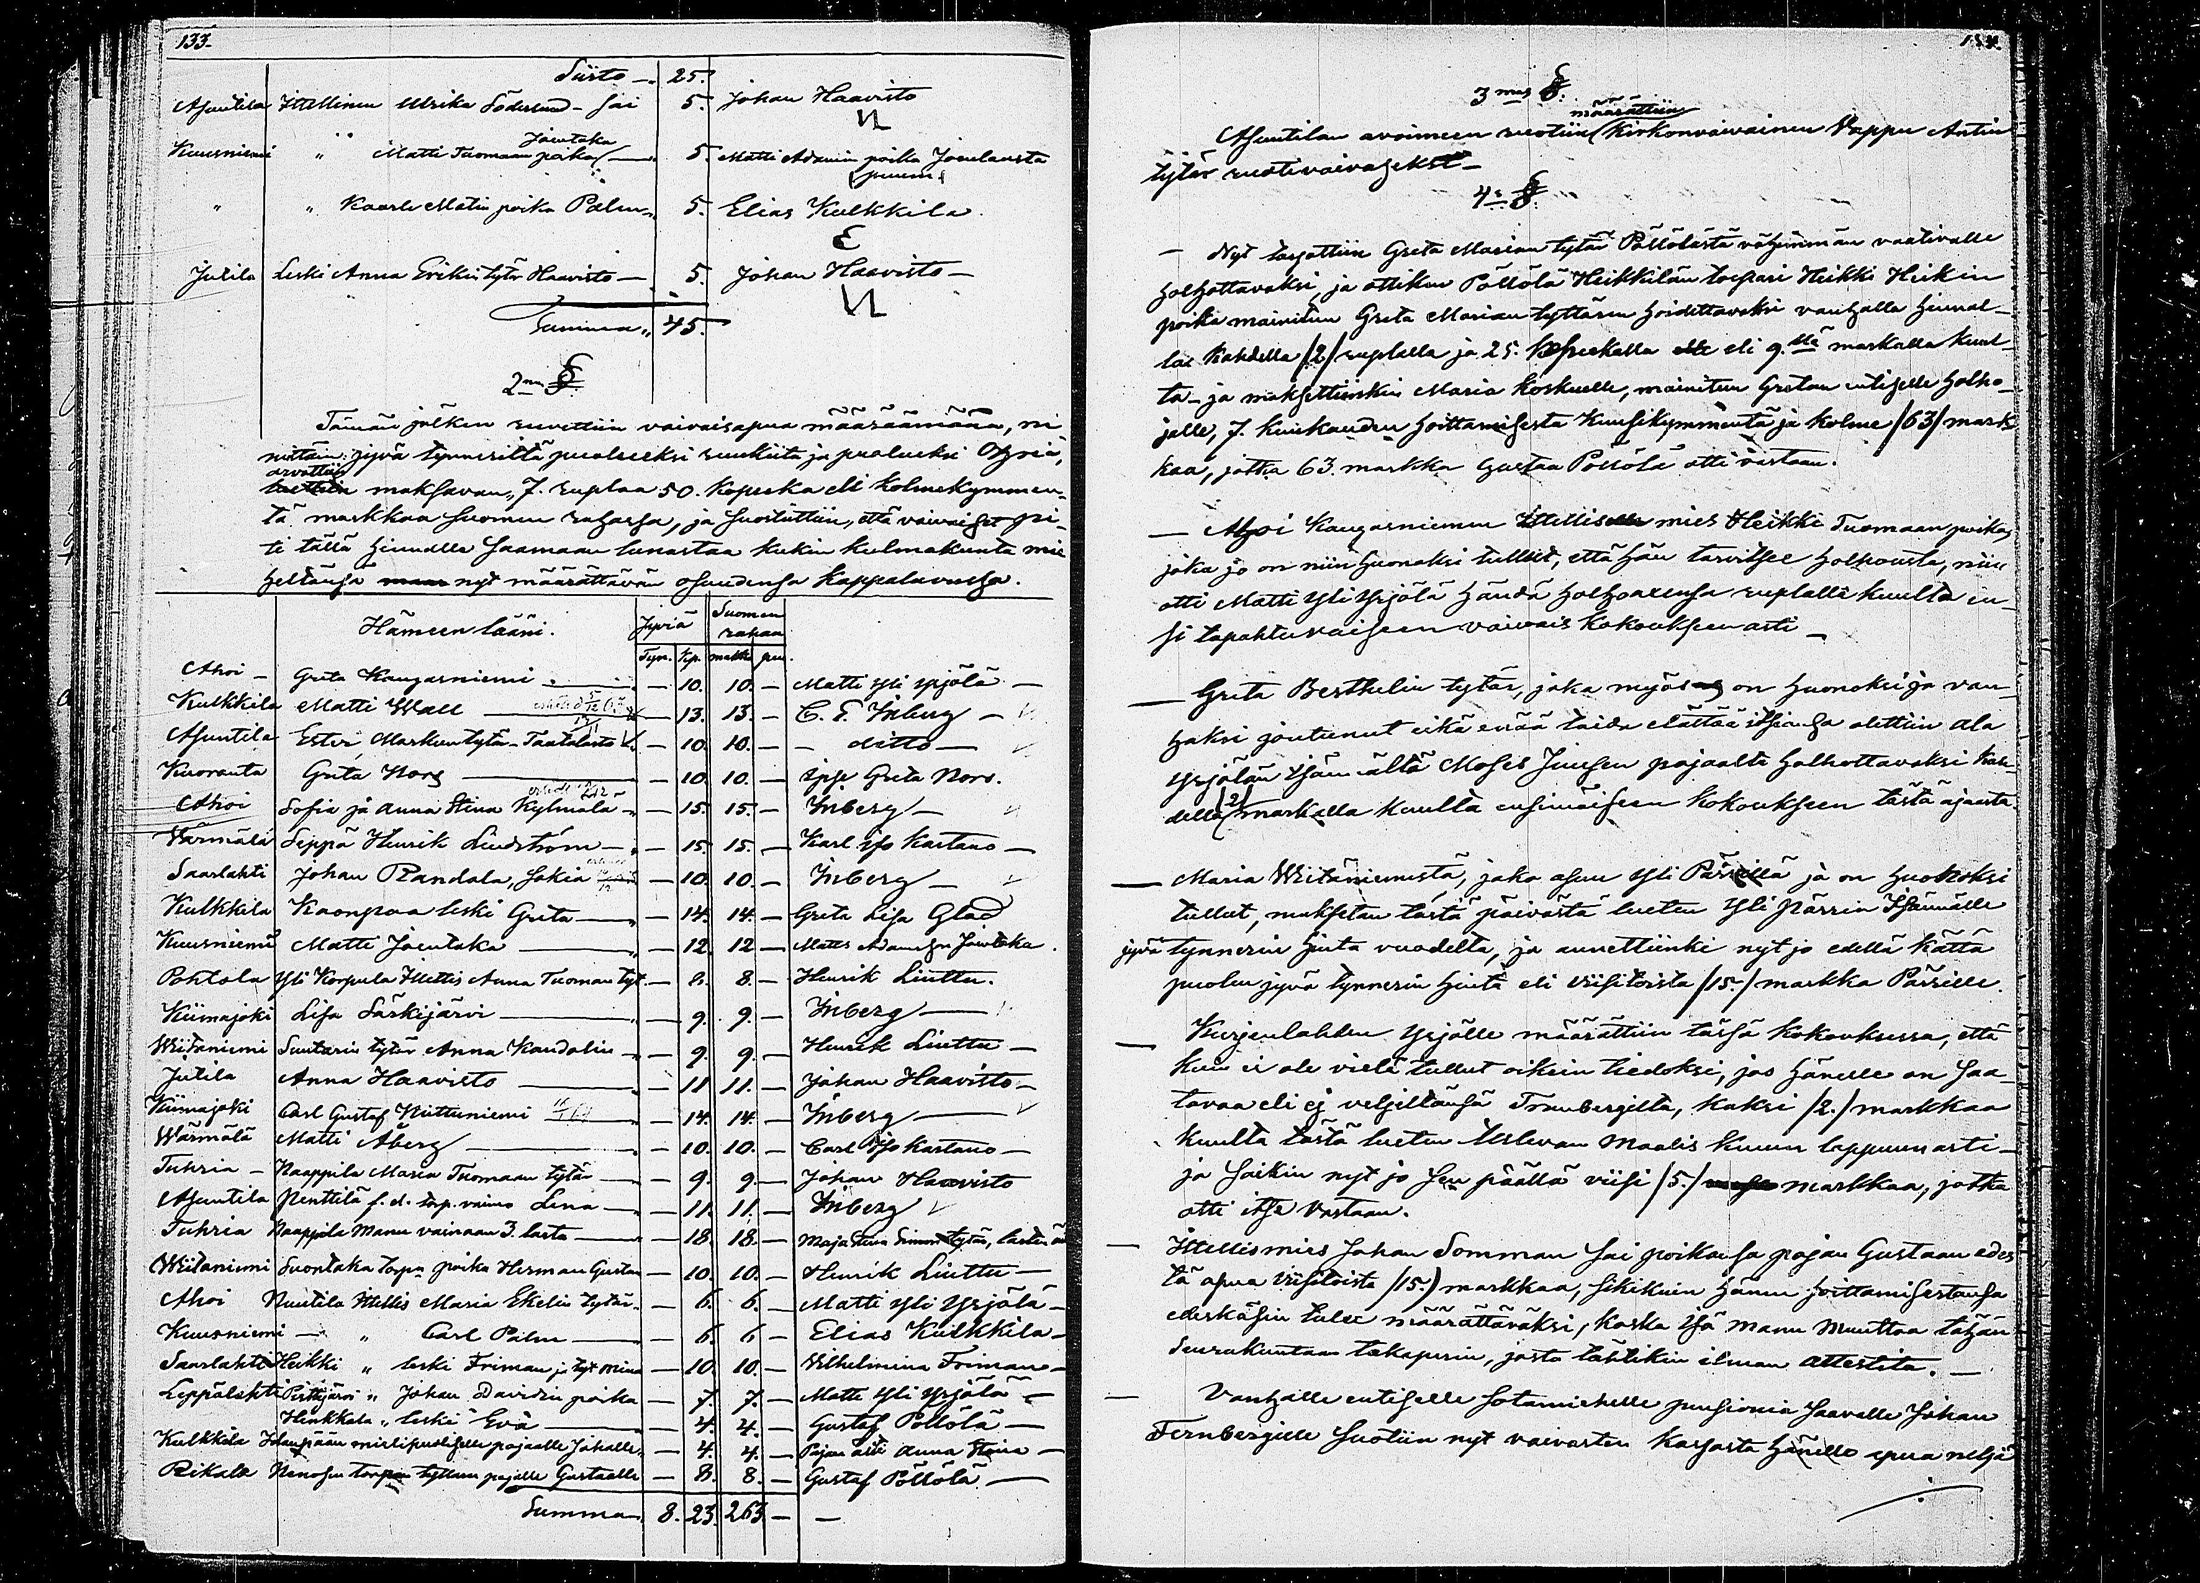 133.
Siirto — 25.
Asuntila Itellinen Ulrika Söderlund — sai 5. Johan Haavisto
Jouutaka
Kuusniemi " Matti Tuomaan poika — 5. Matti Adamin poika
" " Kaarle Matin poika Palm 5. Elias Kulkkila.
Jutila Leski Anna Erikin tytär Haavisto — 5. Johan Haavisto —
Summa " 45.
2n §
Tämän jälken ruvettiin vaivaisapua määräämään, ni
mittäin: jyvä tynnerittä puoleksi rukiita ja puoleksi Ohria,
arvattiin
maksavan, 7. ruplaa 50. kopeka eli kolmekymmen-
tä markkaa Suomen rahassa, ja suostuttiin, että vaivaiset pi-
ti tällä hinnalla saamaan lunastaa kukin kulmakunta mie
heltänsä nyt määrättävän osuudensa kappalavussa.
Hämeen lääni. Jyviä Suomen rahaa
Tyn. Kap. markk. pen.
Ahoi — Greta Kangasniemi — 10. 10. — Matti Yli Yrjölä —
Kulkkila Matti Wall — 13. 13. — C. F. Inberg —
Asuntila Ester Markuntytär Taatalasto — 10. 10. — ditto —
Kuoranta Greta Nors — 10. 10. — itse Greta Nors.
Ahoi Sofia ja Anna Stina Kylmälä — 15. 15. — Inberg —
Wärmälä Seppä Henrik Lindström — 15. 15. — Karl Iso Kartano —
Saarlahti Johan Randala, sokia — 10. 10. — Inberg —
Kulkkila Kaonpaa leski Greta — 14. 14. — Greta Lisa Glad
Kuusniemi Matti Jouutaka — 12. 12 — Matts Adamsson Jouutaka.
Pohtola Yli Korpula Itellis Anna Tuoman tyt. — 8. 8. — Henrik Liuttu.
Kiimajoki Lisa Särkijärvi — 9. 9. — Inberg —
Wiitaniemi Suutarin tytär Anna Kandolin — 9. 9. — Henrik Liuttu —
Jutila Anna Haavisto — 11 11. — Johan Haavisto —
Kiimajoki Carl Gustaf Niittuniemi — 14. 14. — Inberg —
Wärmälä Matti Åberg — 10. 10. — Carl Iso Kartano —
Tuhria — Naappila Maria Tuomaan tytär — 9. 9. — Johan Haavisto
Asuntila Penttilä f. d. torp. vaimo Lena — 11. 11. — Inberg
Tuhria Naappila Manu vainaan 3. lasta — 18. 18. — Maja Stina Simontytär, lasten äiti
Wiitaniemi Suontaka Torpn poika Herman Gustav — 10. 10. — Henrik Liuttu —
Ahoi Nuutila Itellis Maria Ekelin tytär. — 6. 6. — Matti Yli Yrjölä —
Kuusniemi — " Carl Palm — 6. 6 — Elias Kulkkila —
Saarlahti Heikki " leski Friman ja tyt. Mina — 10. 10. — Wilhelmina Friman —
Leppälahti Perttijärvi " Johan Davidin poika — 7. 7. — Matti Yli Yrjölä —
Heikkala " leski Eva — 4. 4. — Gustaf Pöllölä —
Kulkkila mielipuoliselle pojaalle Johalle — 4. 4. — Pojan äiti Anna Stina —
Rikala torpan tyttären pojalle Gustaalle — 8. 8. — Gustaf Pöllölä —
Summa 8. 23. 263 — —
134.
3 mas §.
määrättiin
Asuntilan avoimeen ruotiin (Kirkonvaivainen Vappu Antin
tytär ruotivaivaseksi —
4s §
— Nyt tarjottiin Greta Marian tytär Pöllölästä vähimmän vaativalle
holhottavaksi, ja ottikin Pöllölä Heikkilän torpari Heikki Heikin
poika mainitun Greta Marian tyttären hoidettavaksi vanhalla hinnal-
la kahdella /2/ ruplalla ja 25. kopeekalla eli 9.llä markalla kuul-
ta — ja maksettiinkin Maria Koskuelle, mainitun Gretan entiselle holho-
jalle, 7. kuukauden hoittamisesta Kuusikymmentä ja kolme /63/ mark-
kaa, jotka 63. markka Gustaa Pöllölä otti vastaan.
— Ahoi Kangasniemen Itellis mies Heikki Tuomaan poika,
joka jo on niin huonoksi tullut, että hän tarvitsee holhousta, niin
otti Matti Yli Yrjölä händä holhoarensa ruplalla kuulta en-
si tapahtuvaiseen vaivais kokoukseen asti —
— Greta Berthelin tytär, joka myös on huonoksi ja van-
haksi joutunut eikä enää taida elättää itsiänsä otettiin Ala
Yrjölän Isännältä Moses Juusen pojaalta holhottavaksi kah-
della (2) markalla kuulta ensimäiseen kokoukseen tästä ajasta.
— Maria Wiitaniemestä, joka asuu Yli Pärrillä ja on huonoksi
tullut, maksetan tästä päivästä lueten Yli Pärrin Isännälle
jyvä tynnerin hinta vuodelta, ja annettiinki nyt jo edellä kättä
puolen jyvä tynnerin hinta eli viisitoista /15./ markka Pärrille.
— Kurjenlahden Yrjölle määrättiin tässä kokouksessa, että
kuin ei ole vielä tullut oikein tiedoksi, jos hänelle on saa-
tavaa eli ej veljeltänsä Trunbergilta, kaksi /2./ markkaa
kuulta tästä lueten tulevan Maalis kuun loppuun asti —
ja saikin nyt jo sen päällä viisi /5./ markkaa, jotka
otti itse vastaan.
— Itellismies Johan Somman sai poikansa pojan Gustaan edes
tä apua viisitoista /15./ markkaa, sikikuin hänen hoittamisestansa
edeskäsin tulee määrättäväksi, koska Isä Manu Muuttaa tähän
Seurakuntaan takaperin, josta lähtikin ilman attestita. —
— Vanhalle entiselle sotamiehelle pensionia saavalle Johan
Fernbergille suotiin nyt vaivasten kassasta hänelle apua neljä